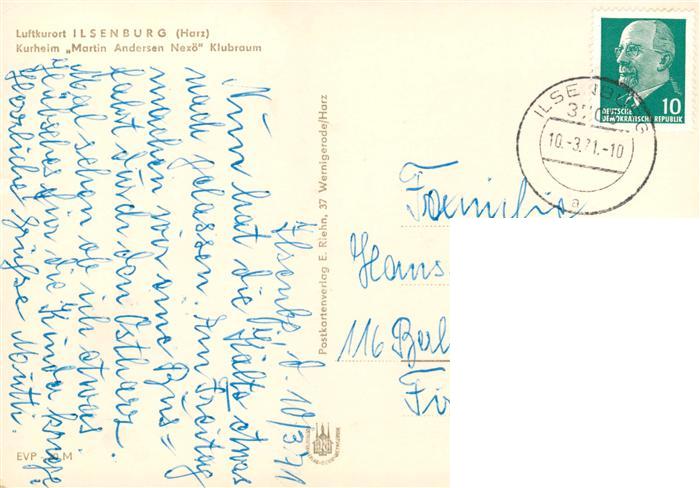 Luftkurort ILSENBURG (Harz)
Kurheim „Martin Andersen Nexö" Klubraum
DEUTSCHE
DEMOKRATISCHE REPUBLIK
10
ILSENBURG
10.-3.71.-10
a
Ilsenbg, d. 10/3.71
Nun hat die Kälte etwas
nach gelassen. Am Freitag
machen wir eine Bus=
fahrt durch den Ostharz.
Mal sehen ob ich etwas
Hübsches für die Kinder kriege
Herzliche Grüße Mutti.
Postkartenverlag E. Riehn, 37 Wernigerode/Harz
Familie
Hans
116 Berl
EVP M